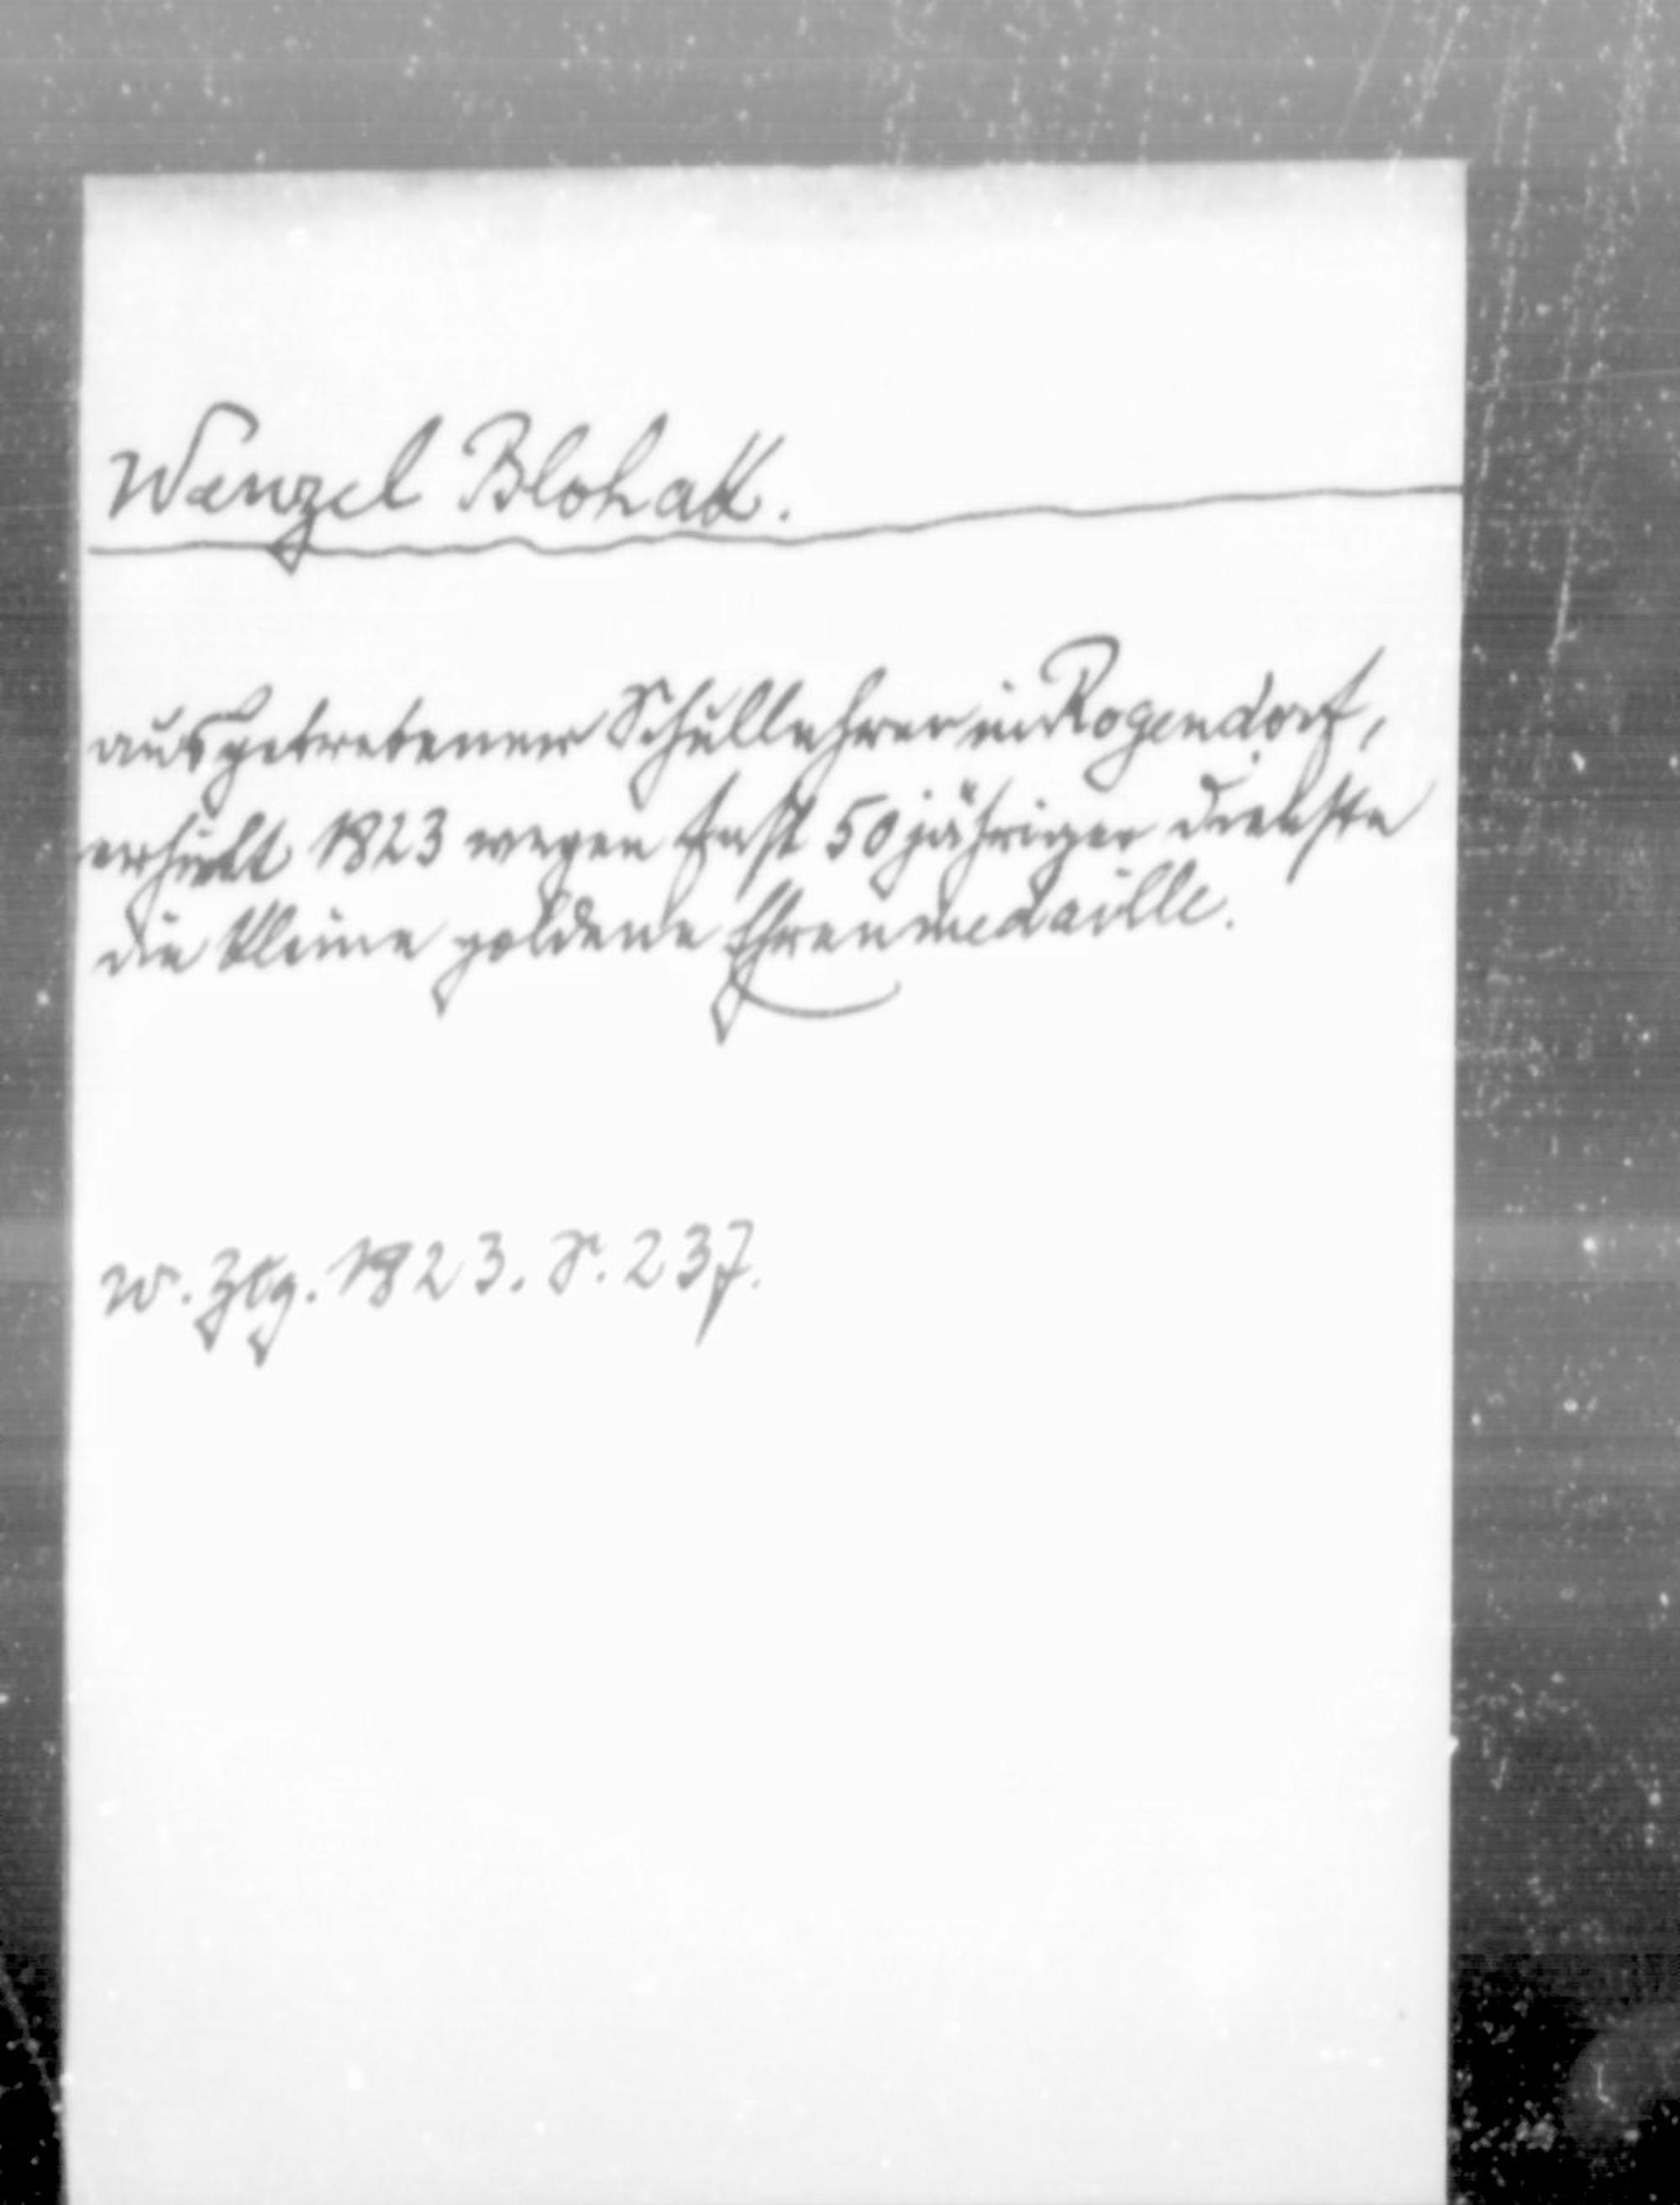 Wenzel Blohak.
ausgetretener Schullehrer in Rogendorf,
erhielt 1823 wegen fast 50jähriger Dienste
die kleine goldene Ehrenmedaille.
W. Ztg. 1823. S. 237.